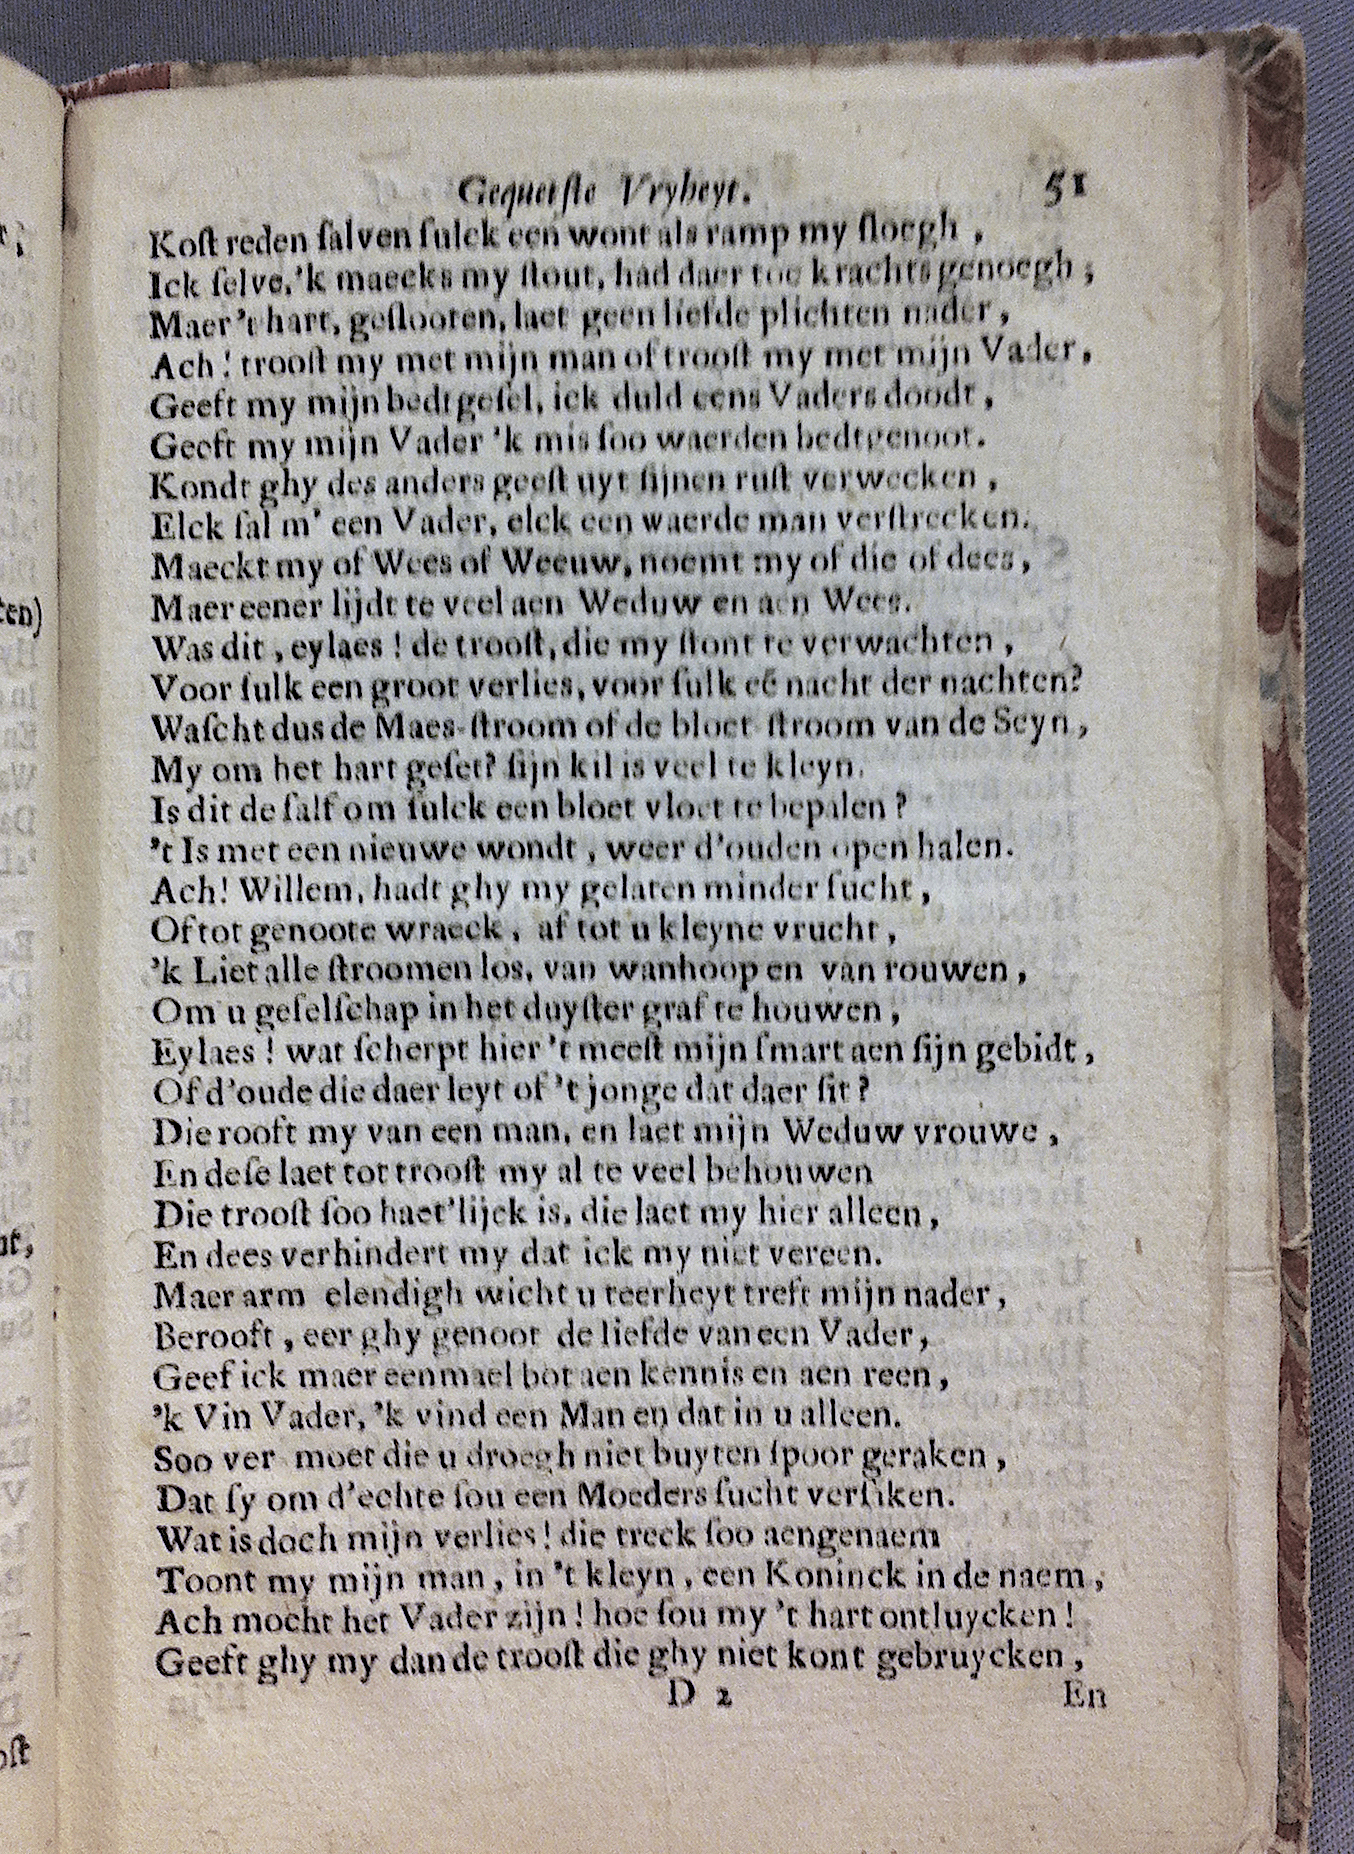 Gequetſte Vryheyt. 51
Koſt reden ſalven ſulck een wont als ramp my ſloegh,
Ick ſelve,'k maecks my ſtout, had daer toe krachts genoegh;
Maer 't hart, geſlooten, laet geen liefde plichten nader,
Ach! trooſt my met mijn man of trooſt my met mijn Vader,
Geeft my mijn bedtgeſel, ick duld eens Vaders doodt,
Geeft my mijn Vader 'k mis ſoo waerden bedtgenoot.
Kondt ghy des anders geeſt uyt ſijnen ruſt verwecken,
Elck ſal m' een Vader, elck een waerde man verſtrecken.
Maeckt my of Wees of Weeuw, noemt my of die of dees,
Maer eener lijdt te veel aen Weduw en aen Wees.
Was dit, eylaes! de trooſt, die my ſtont te verwachten,
Voor ſulk een groot verlies, voor ſulk eē nacht der nachten?
Waſcht dus de Maes-ſtroom of de bloet-ſtroom van de Seyn,
My om het hart geſet? ſijn kil is veel te kleyn.
Is dit de ſalf om ſulck een bloet vloet te bepalen?
't Is met een nieuwe wondt, weer d'ouden open halen.
Ach! Willem, hadt ghy my gelaten minder ſucht,
Of tot genoote wraeck, af tot u kleyne vrucht,
'k Liet alle ſtroomen los, van wanhoop en van rouwen,
Om u geſelſchap in het duyſter graf te houwen,
Eylaes! wat ſcherpt hier 't meeſt mijn ſmart aen ſijn gebidt,
Of d'oude die daer leyt of 't jonge dat daer ſit?
Die rooft my van een man, en laet mijn Weduw vrouwe,
En deſe laet tot trooſt my al te veel behouwen
Die trooſt ſoo haet'lijck is, die laet my hier alleen,
En dees verhindert my dat ick my niet vereen.
Maer arm elendigh wicht u teerheyt treft mijn nader,
Berooft, eer ghy genoot de liefde van een Vader,
Geef ick maer eenmael bot aen kennis en aen reen,
'k Vin Vader, 'k vind een Man en dat in u alleen.
Soo ver moet die u droegh niet buyten ſpoor geraken,
Dat ſy om d'echte ſou een Moeders ſucht verſaken.
Wat is doch mijn verlies! die treck ſoo aengenaem
Toont my mijn man, in 't kleyn, een Koninck in de naem,
Ach mocht het Vader zijn! hoe ſou my 't hart ontluycken!
Geeft ghy my dan de trooſt die ghy niet kont gebruycken,
D 2 En
ten)
oſt